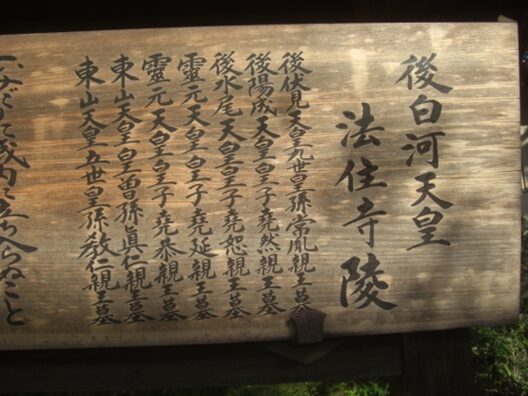 後白河天皇
法住寺陵
後伏見天皇九世皇孫常胤親王墓
後陽成天皇皇子堯然親王墓
後水尾天皇皇子堯恕親王墓
靈元天皇皇子堯延親王墓
靈元天皇皇子堯恭親王墓
東山天皇皇曽孫眞仁親王墓
東山天皇五世皇孫敎仁親王墓
一、みだりに域内に立ち入らぬこと